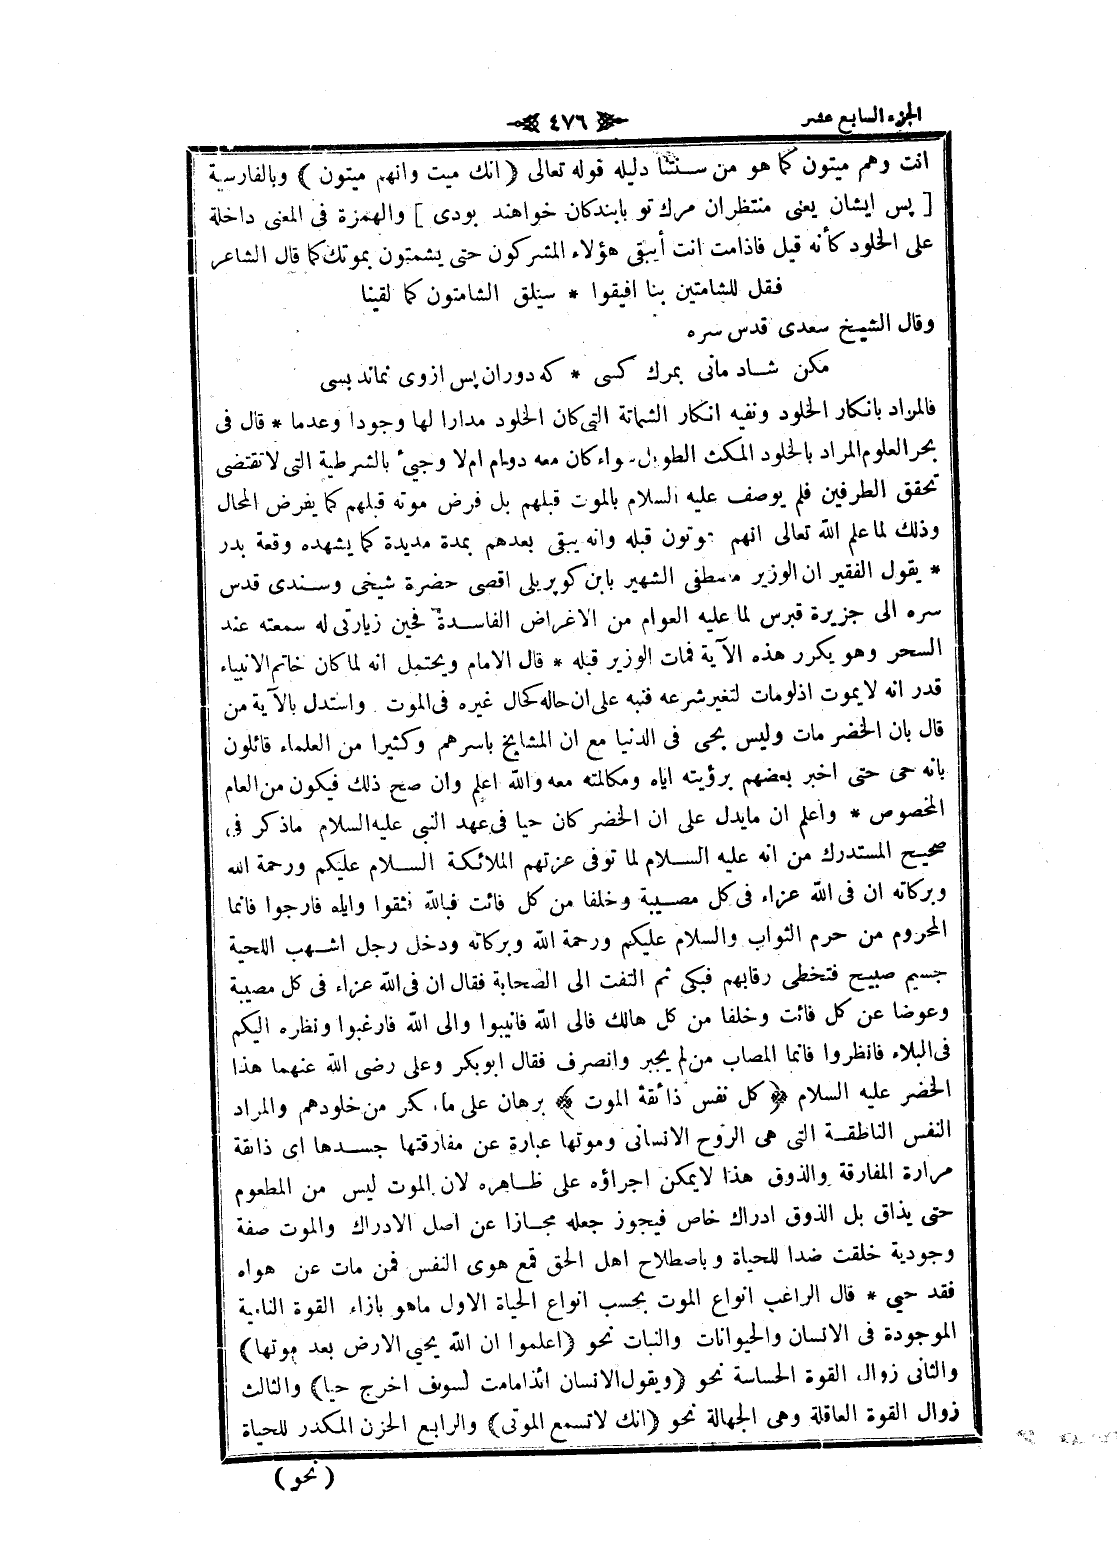 الجزء السابع عشر
٤٧٦
انت وهم ميتون كما هو من سنتنا دليله قوله تعالى ( انك ميت وانهم ميتون ) وبالفارسية
[ پس ايشان يعنى منتظران مرك تو پايندكان خواهند بودى ] والهمزة فى المعنى داخلة
على الخلود كأنه قيل فاذامت انت أيبقى هؤلاء المشركون حتى يشمتون بموتك كما قال الشاعر
فقل للشامتين بنا افيقوا * سيلقى الشامتون كما لقينا
وقال الشيخ سعدى قدس سره
مكن شاد مانى بمرك كسى * كه دوران پس ازوى نماند بسى
فالمراد بانكار الخلود ونفيه انكار الشماتة التى كان الخلود مدارا لها وجودا وعدما * قال فى
بحر العلوم المراد بالخلود المكث الطويل سواء كان معه دوام ام لا وجيئ بالشرطية التى لاتقتضى
تحقق الطرفين فلم يوصف عليه السلام بالموت قبلهم بل فرض موته قبلهم كما يفرض المحال
وذلك لما علم الله تعالى انهم يموتون قبله وانه يبقى بعدهم بمدة مديدة كما يشهده وقعة بدر
* يقول الفقير ان الوزير مصطفى الشهير بابن كوپريلى اقصى حضرة شيخى وسندى قدس
سره الى جزيرة قبرس لما عليه العوام من الاغراض الفاسدة فحين زيارتى له سمعته عند
السحر وهو يكرر هذه الآية فمات الوزير قبله * قال الامام ويحتمل انه لما كان خاتم الانبياء
قدر انه لايموت اذلومات لتغير شرعه فنبه على ان حاله كحال غيره فى الموت واستدل بالآية من
قال بان الخضر مات وليس بحى فى الدنيا مع ان المشايخ باسرهم وكثيرا من العلماء قائلون
بانه حى حتى اخبر بعضهم برؤيته اياه ومكالمته معه والله اعلم وان صح ذلك فيكون من العام
المخصوص * واعلم ان مايدل على ان الخضر كان حيا فى عهد النبى عليه السلام ماذكر فى
صحيح المستدرك من انه عليه السلام لما توفى عزتهم الملائكة السلام عليكم ورحمة الله
وبركاته ان فى الله عزاء فى كل مصيبة وخلفا من كل فائت فبالله فثقوا واياه فارجوا فانما
المحروم من حرم الثواب والسلام عليكم ورحمة الله وبركاته ودخل رجل اشهب اللحية
جسيم صبيح فتخطى رقابهم فبكى ثم التفت الى الصحابة فقال ان فى الله عزاء فى كل مصيبة
وعوضا عن كل فائت وخلفا من كل هالك فالى الله فانيبوا والى الله فارغبوا ونظره اليكم
فى البلاء فانظروا فانما المصاب من لم يجبر وانصرف فقال ابوبكر وعلى رضى الله عنهما هذا
الخضر عليه السلام ﴿ كل نفس ذائقة الموت ﴾ برهان على ما كر من خلودهم والمراد
النفس الناطقة التى هى الروح الانسانى وموتها عبارة عن مفارقتها جسدها اى ذائقة
مرارة المفارقة والذوق هذا لايمكن اجراؤه على ظاهره لان الموت ليس من المطعوم
حتى يذاق بل الذوق ادراك خاص فيجوز جعله مجازا عن اصل الادراك والموت صفة
وجودية خلقت ضدا للحياة وباصطلاح اهل الحق قمع هوى النفس فمن مات عن هواه
فقد حيى * قال الراغب انواع الموت بحسب انواع الحياة الاول ماهو بازاء القوة النامية
الموجودة فى الانسان والحيوانات والنبات نحو (اعلموا ان الله يحيى الارض بعد موتها)
والثانى زوال القوة الحساسة نحو (ويقول الانسان ائذامامت لسوف اخرج حيا) والثالث
زوال القوة العاقلة وهى الجهالة نحو (انك لاتسمع الموتى) والرابع الحزن المكدر للحياة
( نحو )